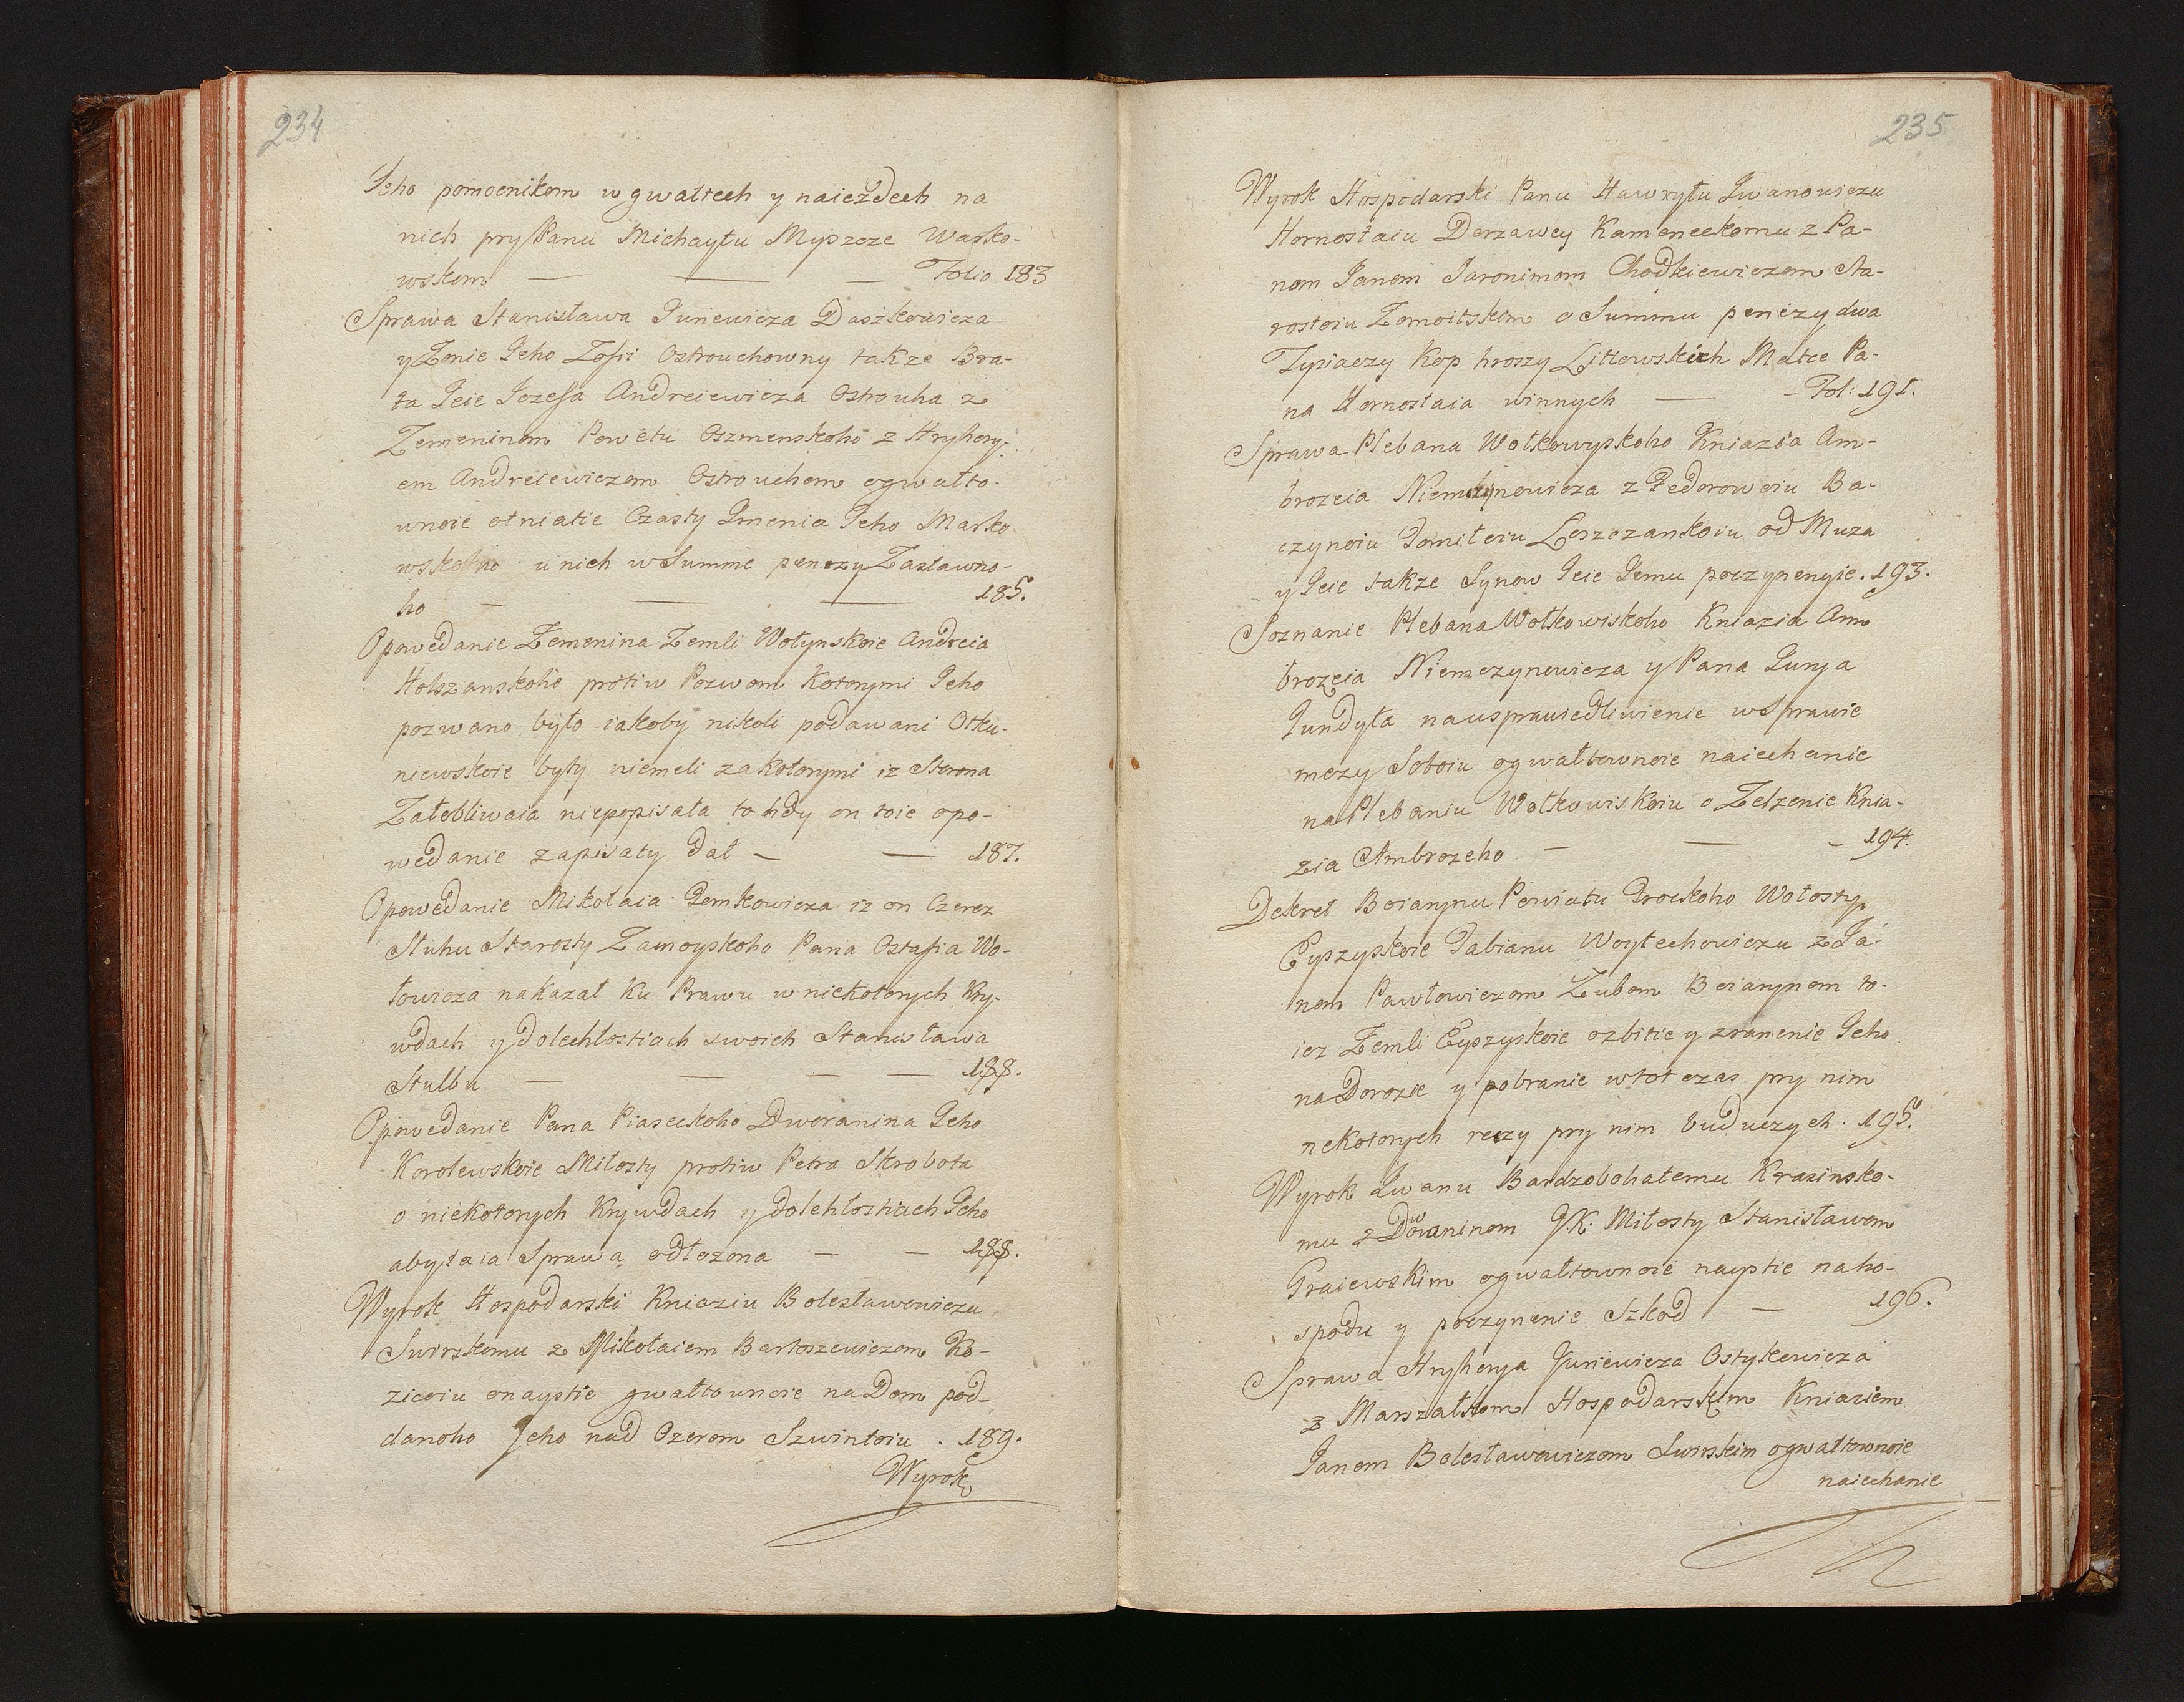 234
Jeho pomocnikom w gwałtech y naiezdech na
nich pry Panu Michayłu Myszcze Warko-
wskom — — — Folio 183
Sprawa Stanisława Juriewicza Daszkowicza
y Zonie Jeho Zofii Ostrouchowny takze Bra-
ta Jeie Jozefa Andreiewicza Ostroucha z
Zemeninom Powetu Oszmenskoho z Hryhory-
em Andreiewiczom Ostrouchom ogwałto-
wnoie otniatie Czasty Jmenia Jeho Marko-
wskoho u nich w Summe penezy Zastawno-
ho — — — 185.
Opowedanie Zemenina Zemli Wołynskoie Andreia
Holszanskoho protiw Pozwom Kotorymi Jeho
pozwano było iakoby nikoli podawani Otku-
niewskoie były niemeli zakotorymi iz Storona
Załobliwaia niepopisała tohdy on toie opo-
wedanie zapisaty dał — — 187.
Opowedanie Mikołaia Demkowicza iz on Czerez
Słuhu Starosty Zamoyskoho Pana Ostafia Wo-
łowicza nakazał Ku Prawu w niekotorych Kry-
wdach y Dolehłostiach swoich Stanisława
Stulbu — — — — 188.
Opowedanie Pana Piaseckoho Dworanina Jeho
Korolewskoie Miłosty protiw Petra Skrobota
o niekotorych Krywdach y dolehłostiach Jeho
aby taia Sprawa odłozona — — 188.
Wyrok Hospodarski Kniaziu Bolesławowiczu
Swirskomu z Mikołaiem Bartoszewiczom Ko-
zicoiu onaystie gwałtownoie na Dom pod-
danoho Jeho nad Ozerom Szwintoiu . 189.
Wyrok
235
Wyrok Hospodarski Panu Hawryłu Jwanowiczu
Hornostaiu Derzawcy Kameneckomu z Pa-
nom Janom Jaronimom Chodkiewiczom Sta-
rostoiu Zomoitskim o Summu penezy dwa
Tysiaczy Kop hroszy Littowskich Matce Pa-
na Hornostaia winnych — — Fol: 191.
Sprawa Plebana Wołkowyskoho Kniazia Am-
brozeia Niemczynowicza z Fedorowoiu Ba-
czynoiu Domiteiu Leszczanskoiu od Muza
y Jeie takze Synow Jeie Jemu poczynenyie . 193.
Soznanie Plebana Wołkowiskoho Kniazia Am
brozeia Niemczynowicza y Pana Jurya
Jundyła nausprawiedliwienie w Sprawie
mezy Soboiu ogwałtownoie naiechanie
na Plebaniu Wołkowiskoiu o Zelzenie Knia-
zia Ambrozeho — — — 194.
Dekret Boiarynu Powiatu Trockoho Wołosty
Eyszyskoie Fabianu Woytechowiczu z Ja-
nom Pawłowiczom Zubom Boiarynom to-
iez Zemli Eyszyskoie ozbitie y zranenie Jeho
na Dorozie y pobranie wtot czas pry nim
nekotorych reczy pry nim buduczych . 195.
Wyrok Jwanu Bardzobohatemu Krasinsko-
mu z Dworaninom J.K. Miłosty Stanisławom
Graiewskim ogwałtownoie naystie naho-
spodu y poczynenie Szkod — 196.
Sprawa Hryhorya Juriewicza Ostykowicza
z Marszałkom Hospodarskim Kniaziem
Janom Bolesławowiczom Swirskim ogwałtownoie
naiechanie